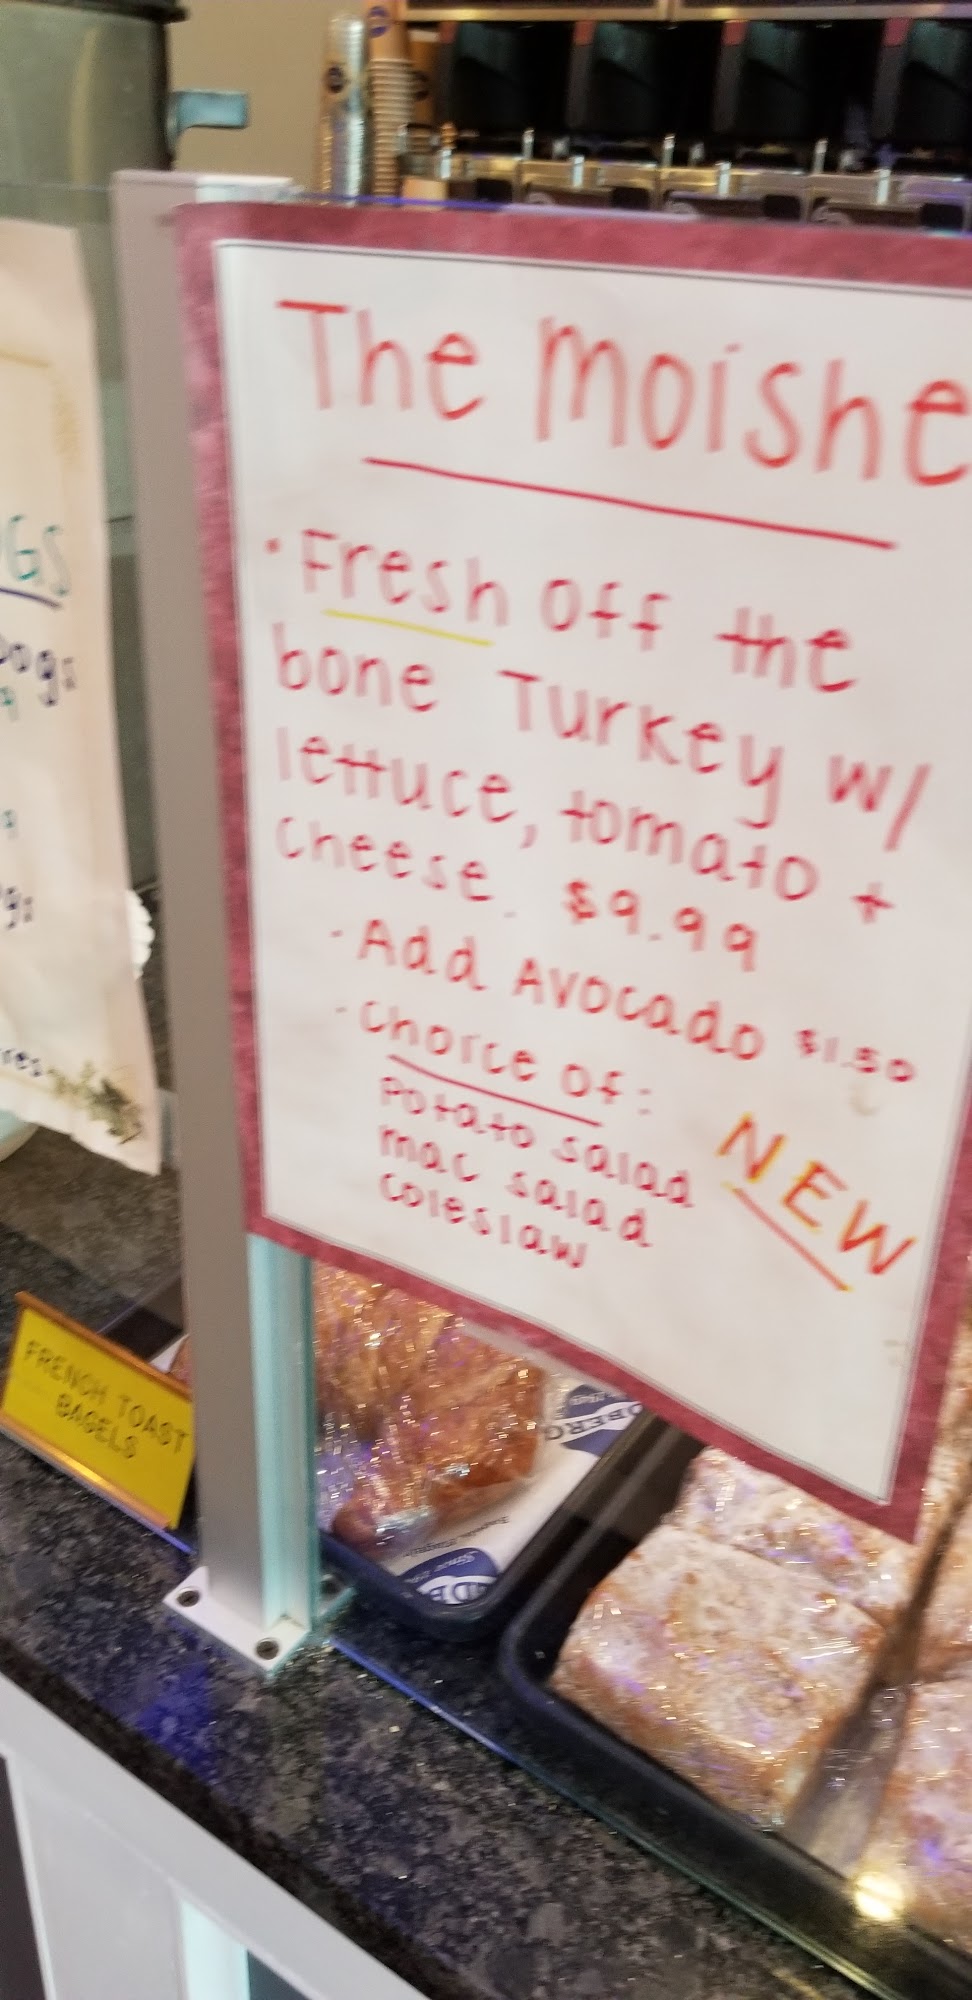 The Moishe
· Fresh off the
bone Turkey w/
lettuce, tomato +
cheese. $9.99
· Add Avocado $1.50
· Choice of:
Potato salad
mac salad
coleslaw
NEW
GS
ogs
FRENCH TOAST
BAGELS